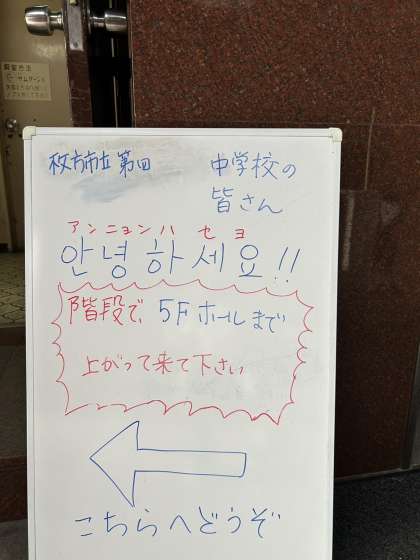 枚方市立 第四 中学校の
皆さん
アンニョンハ セ ヨ
안녕하세요!!
階段で 5F ホールまで
上がって来て下さい
こちらへどうぞ